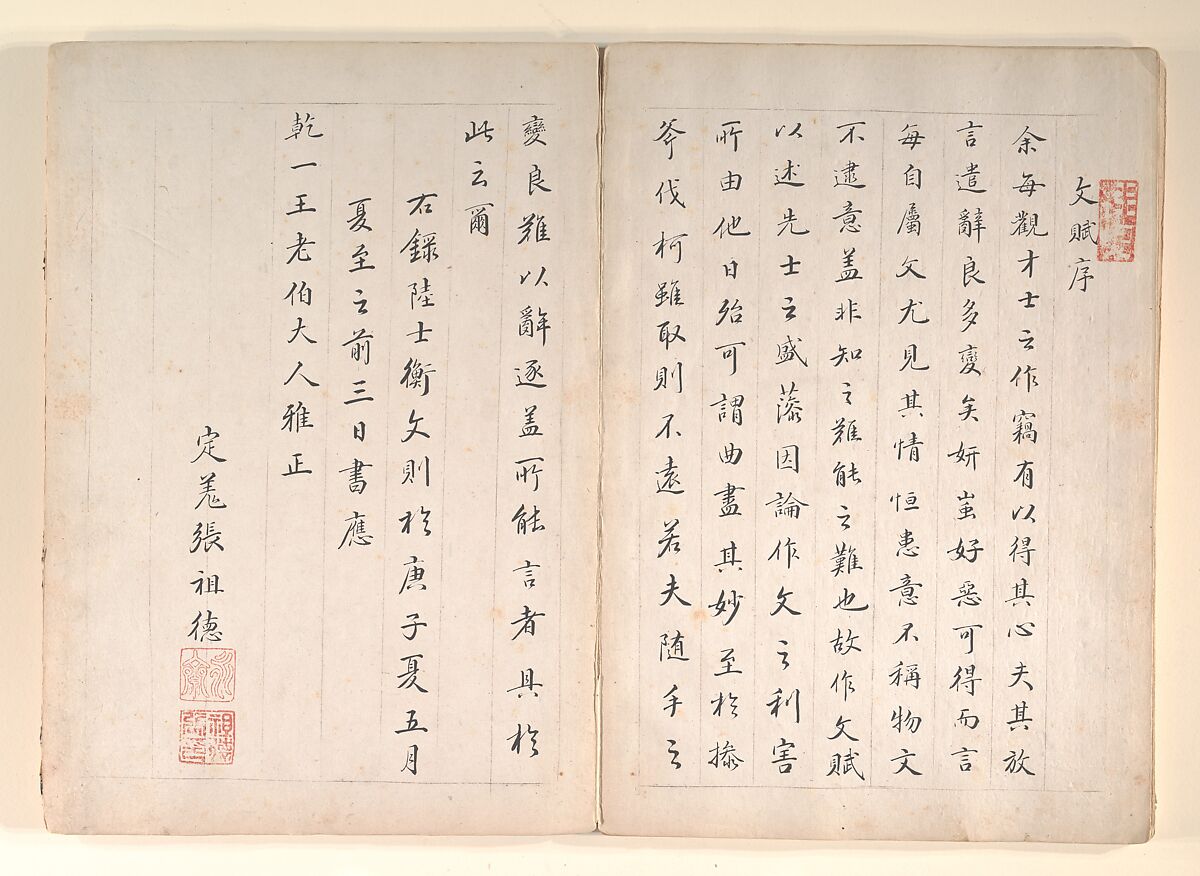 文賦序
余每觀才士之作竊有以得其心夫其放
言遣辭良多變矣妍蚩好惡可得而言
每自屬文尤見其情恒患意不稱物文
不逮意蓋非知之難能之難也故作文賦
以述先士之盛藻因論作文之利害
所由他日殆可謂曲盡其妙至於操
斧伐柯雖取則不遠若夫隨手之
變良難以辭逐蓋所能言者具於
此云爾
右錄陸士衡文則於庚子夏五月
夏至之前三日書應
乾一王老伯大人雅正
定羌張祖德